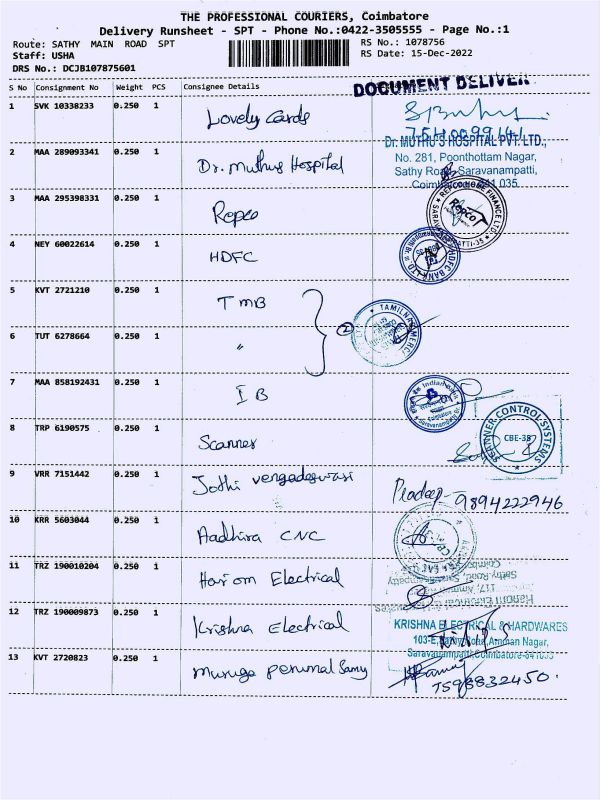 THE PROFESSIONAL COURIERS, Coimbatore
Delivery Runsheet - SPT - Phone No.:0422-3505555 - Page No.:1
Route: SATHY MAIN ROAD SPT
RS No.: 1078756
Staff: USHA
RS Date: 15-Dec-2022
DRS No.: DCJB107875601
S No Consignment No Weight PCS Consignee Details
DOCUMENT DELIVER
1 SVK 10338233 0.250 1 Lovely Cards
2 MAA 289093341 0.250 1 Dr. Muthus Hospital
Dr. MUTHU'S HOSPITAL PVT. LTD.,
No. 281, Poonthottam Nagar,
Sathy Road, Saravanampatti,
Coimbatore 641 035
3 MAA 295398331 0.250 1 Repco
REPCO HOME FINANCE LTD.
Repco
4 NEY 60022614 0.250 1 HDFC
HDFC BANK LTD.
5 KVT 2721210 0.250 1 TMB
2
TAMILNAD MERC
6 TUT 6278664 0.250 1 "
7 MAA 858192431 0.250 1 IB
Indian Bank
8 TRP 6190575 0.250 1 Scanner
SCANNER CONTROL SYSTEMS
CBE-35
9 VRR 7151442 0.250 1 Jothi vengadeswari
Pradeep - 9894222946
10 KRR 5603044 0.250 1 Aadhira CNC
11 TRZ 190010204 0.250 1 Hari om Electrical
12 TRZ 190009873 0.250 1 Krishna Electrical
KRISHNA ELECTRICAL & HARDWARES
103-E, Sathy Road, Amman Nagar,
Saravanampatti, Coimbatore-641035
13 KVT 2720823 0.250 1 Muruga perumal Samy
7598832450.